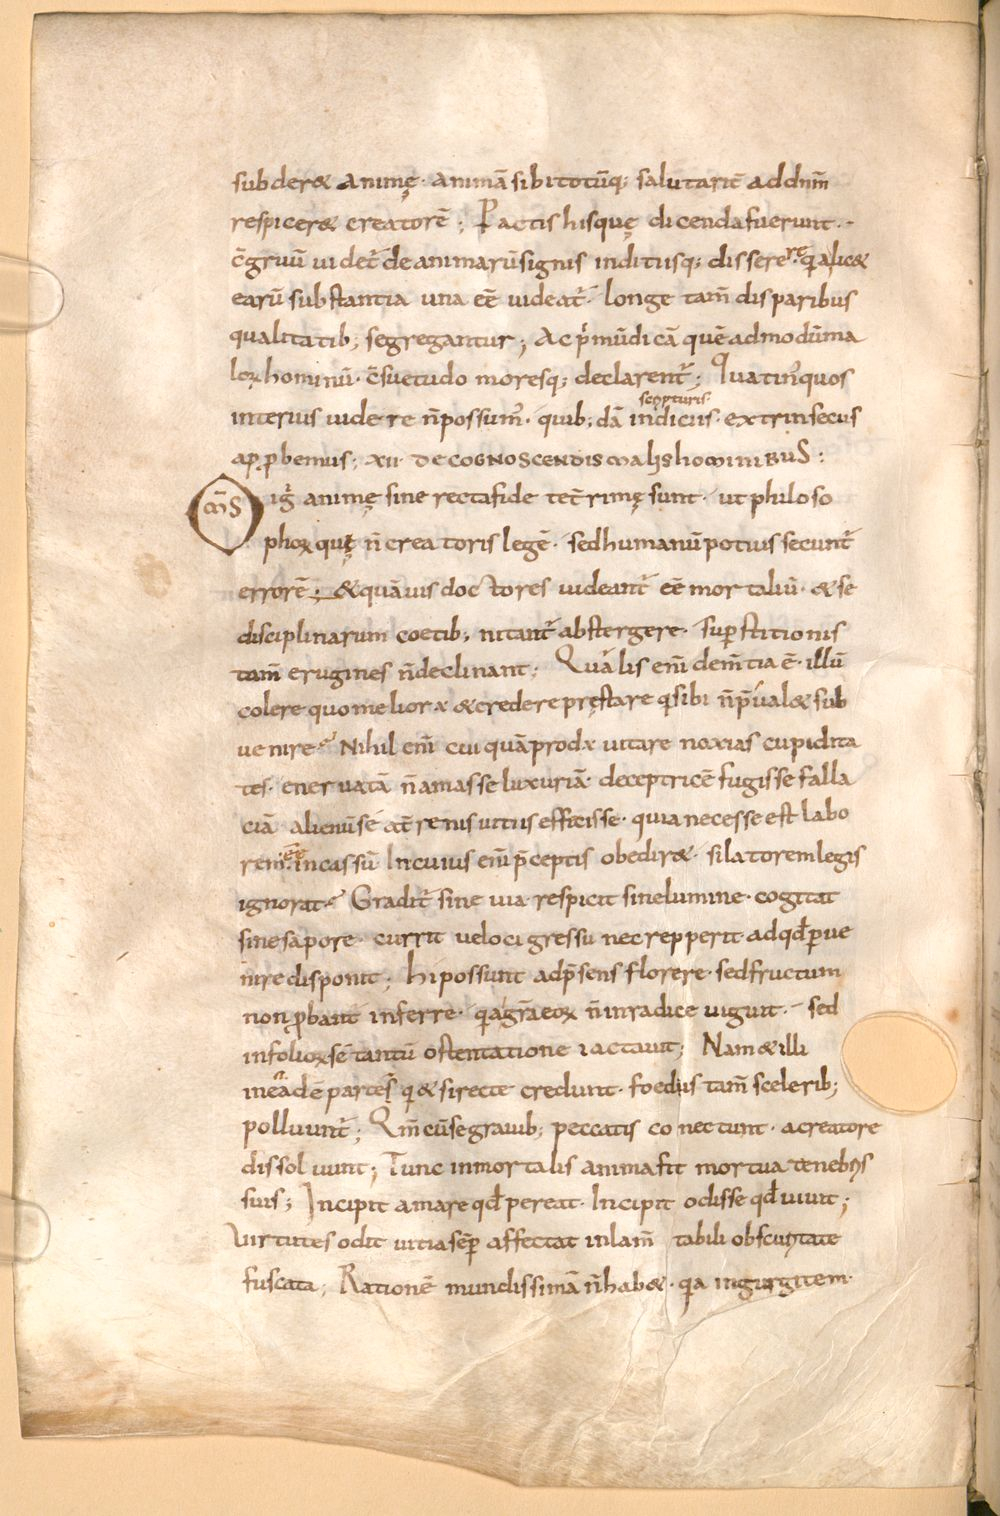 subder& animę· animā sibi totūq; salutarit̄ ad dn̄m
respicer& creatorē; Pactis hisquę dicenda fuerunt·
c̄gruū uidet̄ de animarū signis inditiisq; disserere· q̄a lic&
earū substantia una eē uideat̄· longe tam̄ disparibus
qualitatib; segregantur; Ac p̄mū dicā quēadmodū ma
loꝝ hominū· c̄suetudo moresq; declarent̄; Quatin' quos
interius uidere n̄ possum'· quib; dā indiciis scripturis· extrinsecus
apꝓbemus; xii· DE COGNOSCENDIS MALIS HOMINIBUS:
Om̄s iḡ animę sine recta fide tet̄rimę sunt· ut philoso
phoꝝ quę n̄ creatoris legē· sed humanū potius secunt̄
errorē; & quāuis doctores uideant̄ eē mortaliū· & se
disciplinarum coetib; nitant̄ abstergere· suꝑstitionis
tam̄ erugines n̄ declinant; Qualis eni̅ dem̄tia ē· illū
colere quo meliorē & credere pręstare q̄ sibi n̄ p̄ual& sub
uenire· Nihil eni̅ cuiquā prod& uitare noxias cupidita
tes· eneruatā n̄ amasse luxuriā· deceptricē fugisse falla
ciā alienū se at̄renis uitiis effecisse· quia necesse est labo
rem eē incassū· In cuius eni̅ p̄ceptis obedir&· si latorem legis
ignorat· Gradit̄ sine uia· respicit sine lumine· cogitat
sine sapore· currit ueloci gressu nec repperit ad qd̄ ꝑue
nire disponit; Hi possunt ad p̄sens florere· sed fructum
non ꝓbant̄ inferre· q̄a gr̄a eoꝝ n̄ in radice uiguit· sed
in folioꝝ sē tantū ostentatione iactauit; Nam & illi
in eadē parte s̄ q̄ & si recte credunt· foedis tam̄ sclerib;
polluunt̄; Qm̄ cū se grauib; peccatis conectunt· a creatore
dissoluunt; Tunc inmortalis anima fit mortua tenebris
suis; Incipit amare qd̄ pereat· Incipit odisse qd̄ uiuit;
Uirtutes odit uitia sēp̄ affectat inlam̄tabili obscuritate
fuscata; Rationē mundissimā n̄ hab&· q̄a in gurgitem·